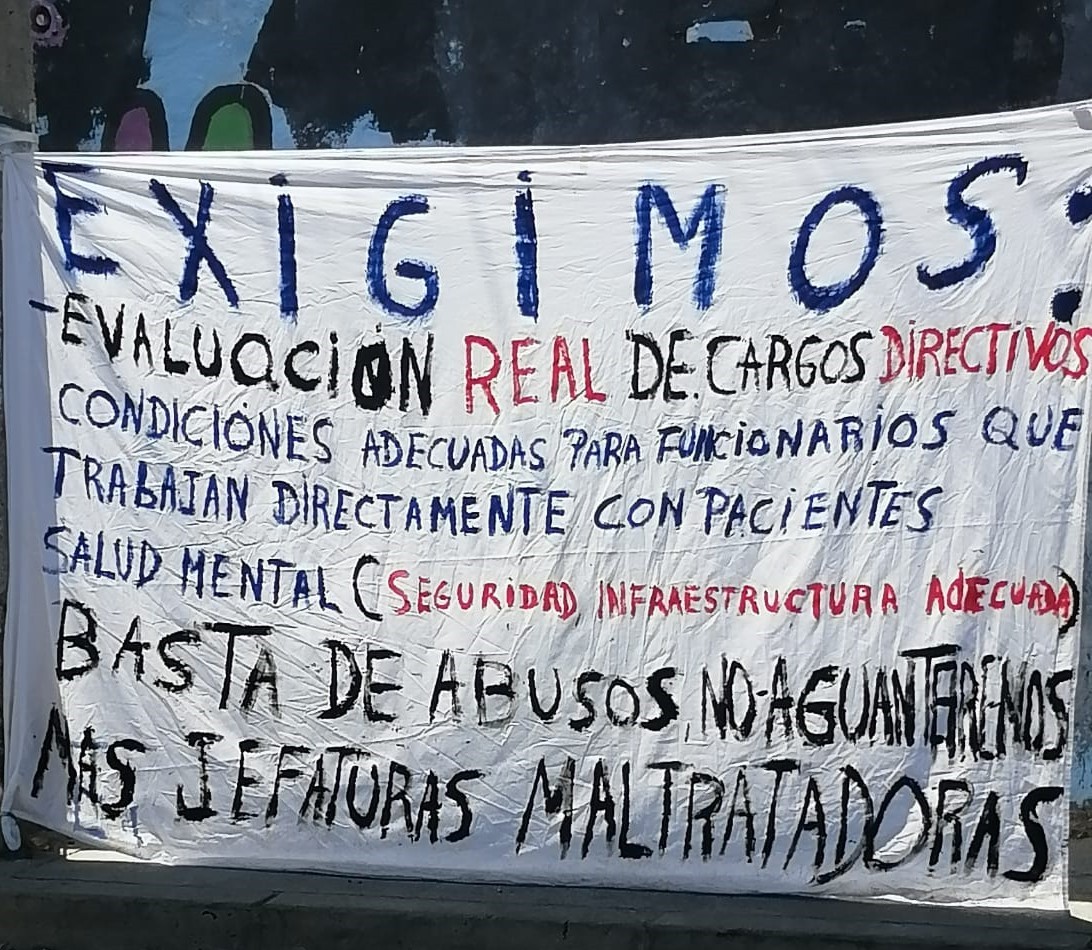 EXiGiMOS:
-EVALUACiÓN REAL DE CARGOS DiRECTiVOS
CONDICIONES ADECUADAS PARA FUNCiONARiOS QUE
TRABAJAN DiRECTAMENTE CON PACiENTES
SALUD MENTAL (SEGURiDAD, INFRAESTRUCTURA ADECUADA)
BASTA DE ABUSOS, NO AGUANTEREMOS
MAS JEFATURAS MALTRATADORAS